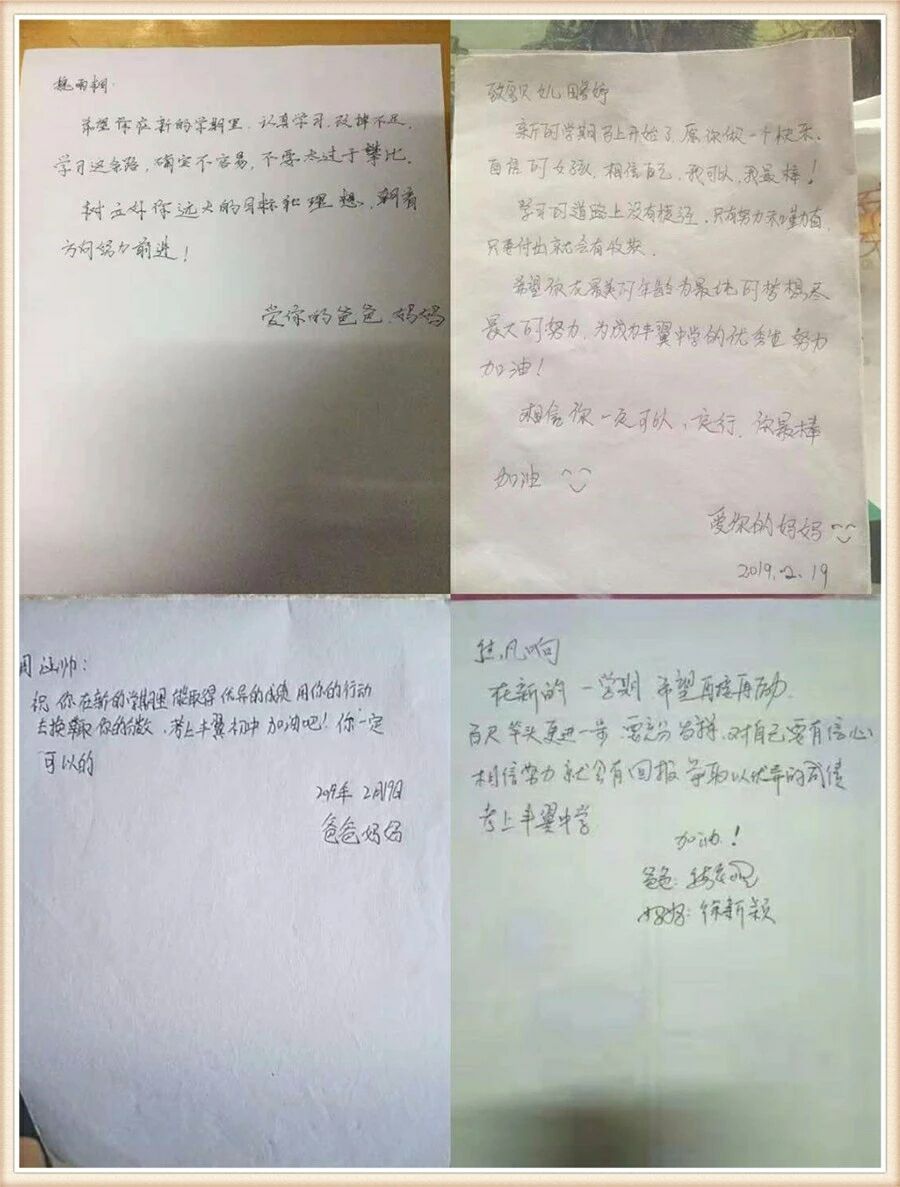 魏雨桐:
希望你在新的学期里，认真学习，改掉不足，
学习这条路，确定不容易，不要太过于攀比。
树立好你远大的目标和理想，朝着
方向努力前进！
爱你的爸爸、妈妈
致 女儿
新的学期马上开始了，愿你做一个快乐，
自信的女孩，相信自己，我可以，我最棒！
学习的道路上没有捷径，只有努力和勤奋，
只要付出就会有收获。
希望你在最美的年龄为最 的梦想尽
最大的努力，为成为丰翼中学的优秀生努力
加油！
相信你一定可以，一定行，你最棒
加油
爱你的妈妈
2019.2.19
帅：
祝你在新的学期里能取得优异的成绩 用你的行动
去换取你的分数，考上丰翼初中 加油吧！你一定
可以的
2019年2月19日
爸爸妈妈
熊凡响
在新的一学期 希望再接再励
百尺竿头更进一步 要充分 对自己要有信心
相信努力就会有回报 争取以优异的成绩
考上丰翼中学
加油！
爸爸：
妈妈：徐新颖